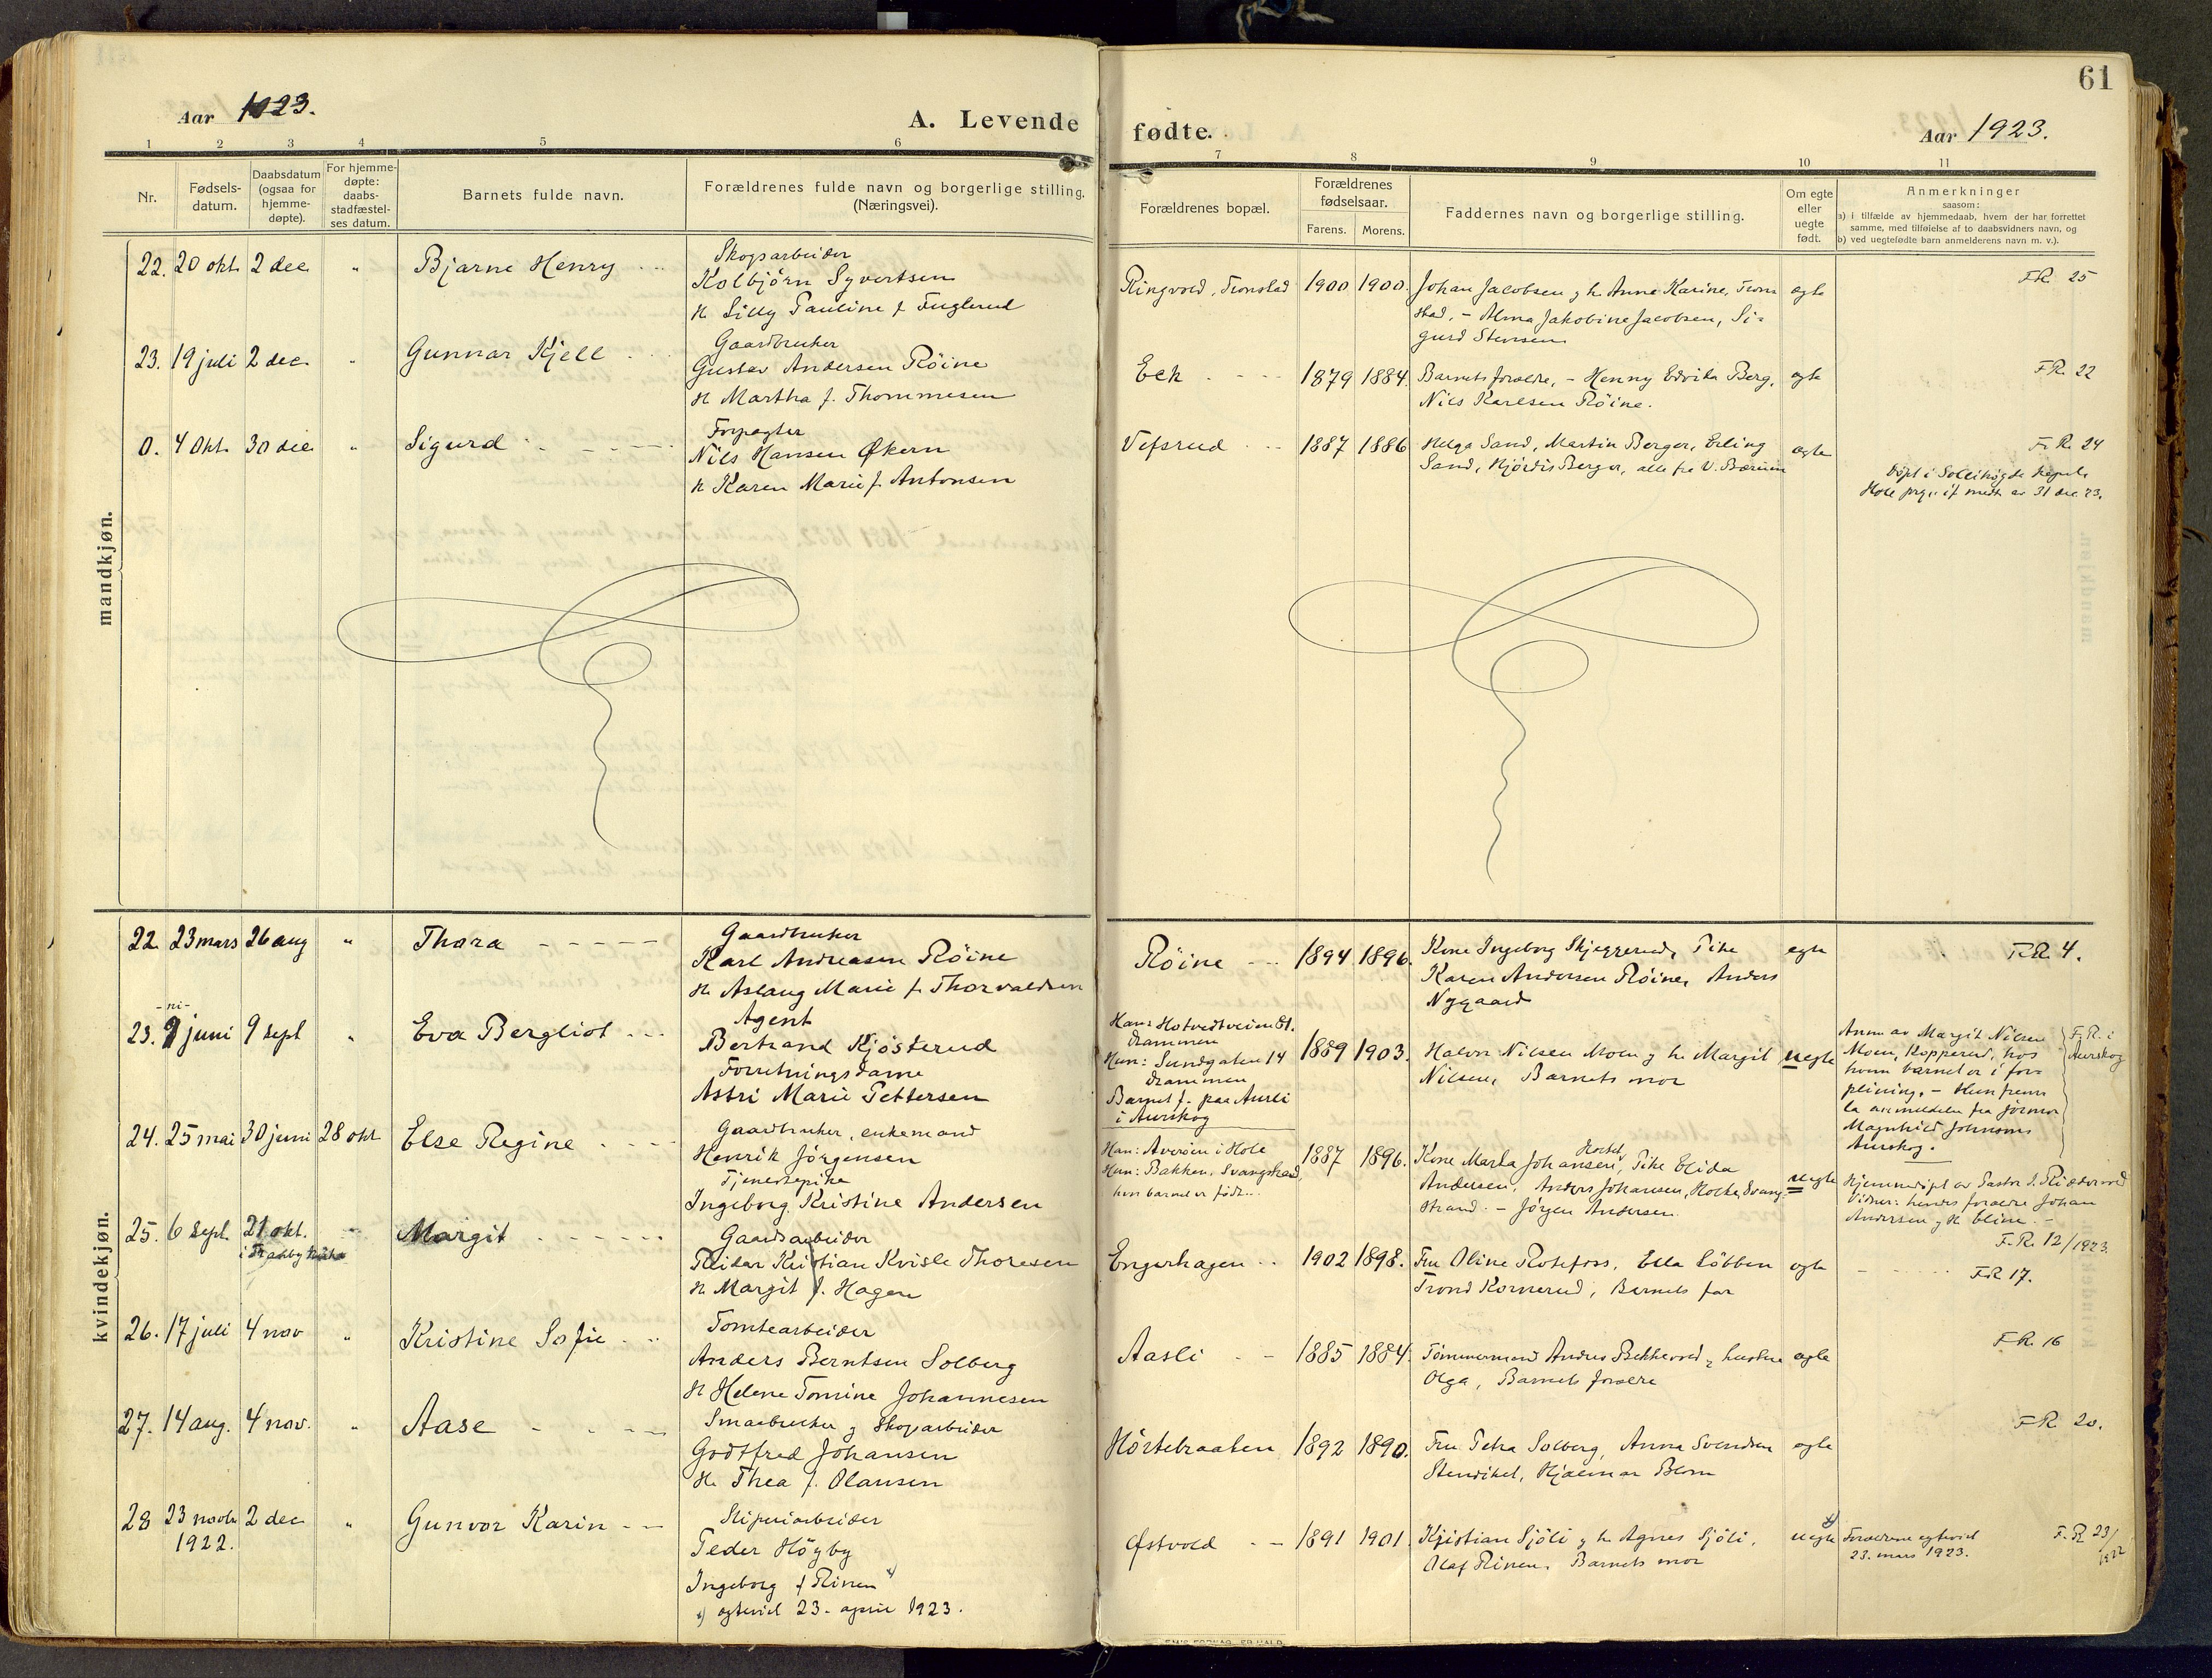 61
Aar 1923.
A. Levende fødte.
Aar 1923.
1 2 3 4 5 6 7 8 9 10 11
Nr.
Fødsels-
datum.
Daabsdatum
(ogsaa for
hjemme-
døpte).
For hjemme-
døpte:
daabs-
stadfæstel-
ses datum.
Barnets fulde navn.
Forældrenes fulde navn og borgerlige stilling.
(Næringsvei).
Forældrenes bopæl.
Forældrenes
fødselsaar.
Farens. Morens.
Faddernes navn og borgerlige stilling.
Om egte
eller
uegte
født.
Anmerkninger
saasom:
a) i tilfælde av hjemmedaab, hvem der har forrettet
samme, med tilføielse af to daabsvidners navn, og
b) ved uegtefødte barn anmelderens navn m. v.).
mandkjøn.
22. 20 okt. 2 dec. " Bjarne Henry
Skogsarbeider
Kolbjörn Syvertsen
H. Lilly Pauline f. Fuglerud
Ringvold, Tronstad 1900 1900.
Johan Jacobsen g h. Anne Karine, Tron
stad, - Alma Jakobine Jacobsen, Si-
gurd Stensen
egte
F.R. 25
23. 19 juli 2 dec. " Gunnar Kjell
Gaardbruker
Gustav Andersen Röine
H Martha f. Thommesen
Eek 1879 1884.
Barnets foreldre, - Henny Edvika Berg,
Nils Karlsen Röine.
egte
F.R. 22
0. 4 okt. 30 dec. " Sigurd
Forpagter
Nils Hansen Økern
H Karen Marie f. Antonsen
Vefsrud 1887 1886
Helga Sand, Martin Berger, Erling
Sand, Hjördis Berger, alle fra V. Bærum
egte
F. R. 24
Döpt i Sollihögda kapel,
Hole prg. if medd. av 31 dec 23.
kvindekjøn.
22. 23 mars 26 aug " Thora
Gaardbruker
Karl Andreasen Röine
H. Aslaug Marie f. Thorvaldsen
Röine 1894 1896.
Kone Ingeborg Skjeggerud, Pike
Karen Andersen Röine, Anders
Nygaard
egte
F.R. 4.
-ni-
23. 9 juni 9 sept " Eva Bergliot
Agent
Bertrand Kjösterud
Forretningsdame
Astri Marie Pettersen
Han: Hotvedtveien 81.
Drammen
Hun: Sundgaten 14
Drammen
Barnet f. paa Aursli
i Aurskog
1889 1903.
Halvor Nilsen Moen g h. Margit
Nilsen, Barnets mor
uegte
Anm av Margit Nilsen
Moen, Kopperud, hos
hvem barnet er i for-
pleining. - Hun frem
la anmeldelse fra jormor
Magnhild Johnsons
Aurskog.
F.R. i
Aurskog
24. 25 mai 30 juni 28 okt Else Regine
Gaardbruker, enkemand
Henrik Jörgensen
Tjenestepike
Ingeborg Kristine Andersen
Han: Averöen i Hole
Hun: Bakken, Svangstrand,
hvor barnet er född.
1887 1896.
Kone Marta Johansen, Pike Elida
Andersen, Anders Johansen, Holte, Svang-
strand. - Jörgen Andersen.
uegte
Hjemmedöpt av Pastor S. Ridderovold
Vidner: hendes foreldre Johan
Andersen g H. Eline. -
F. R. 12/1923.
25. 6 sept. 21 okt. Margit
i Tranby kirke
Gaardsarbeider
Reidar Kristian Kvisle Thoresen
H Margit f. Hagen
Engerhagen 1902 1898.
Fru Oline Rosefoss, Ella Löbben
Trond Kornerud, Barnets far
egte
F.R. 17.
26. 17 juli 4 nov " Kristine Sofie
Tomtearbeider
Anders Berntsen Solberg
H Helene Tomine Johannesen
Aasli 1885 1884.
Tömmermand Anders Bekkevold g hustru
Olga, Barnets foreldre
egte
F.R. 16
27. 14 aug. 4 nov. " Aase
Smaabruker g Skogsarbeider
Godtfred Johansen
H. Thea f. Olausen
Hörtebraaten 1892 1890.
Fru Petra Solberg, Anna Svendsen
Stendihel, Hjalmar Blom
egte
F.R. 20.
28 23 novb. 2 dec " Gunvor Karin
1922.
Sliperiarbeider
Peder Högby
Ingeborg f Rinen x)
x) egteviet 23. april 1923.
Østvold 1891 1901.
Kristian Sjöli g h. Agnes Sjöli,
Olaf Rinen, Barnets mor
uegte x)
Foreldrene egteviet
23. mars 1923.
F. R. 23/1922